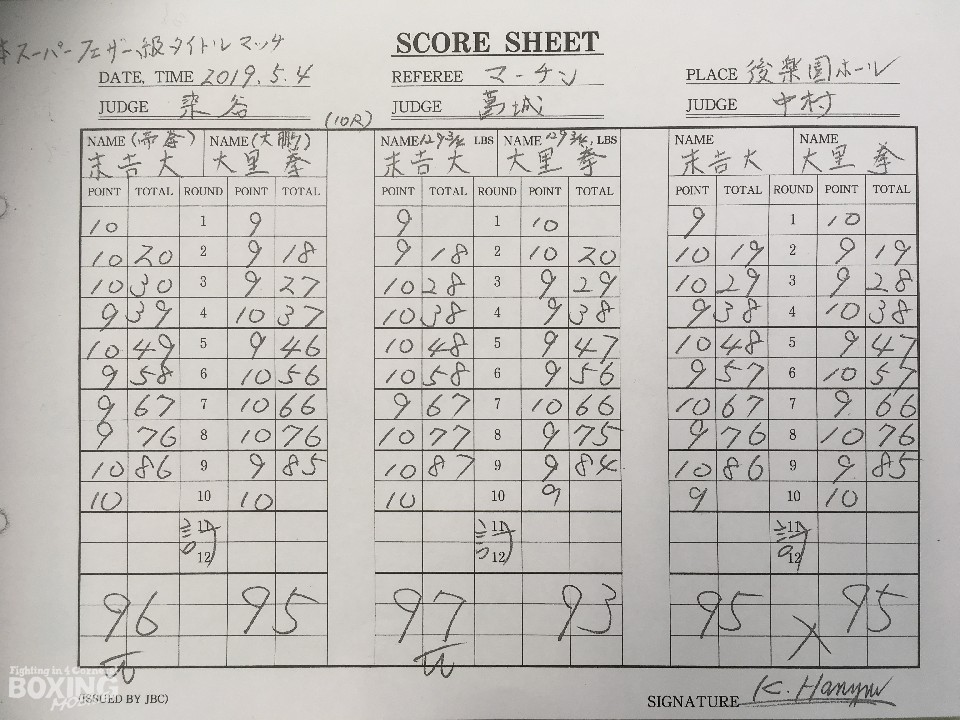 本スーパーフェザー級タイトルマッチ
SCORE SHEET
DATE, TIME 2019.5.4 REFEREE マーチン PLACE 後楽園ホール
JUDGE 染谷 (10R) JUDGE 葛城 JUDGE 中村
NAME (帝拳) NAME (大鵬) NAME 129 3/4 LBS NAME 129 3/4 LBS NAME NAME
末吉大 大里拳 末吉大 大里拳 末吉大 大里拳
POINT TOTAL ROUND POINT TOTAL POINT TOTAL ROUND POINT TOTAL POINT TOTAL ROUND POINT TOTAL
10 1 9 9 1 10 9 1 10
10 20 2 9 18 9 18 2 10 20 10 19 2 9 19
10 30 3 9 27 10 28 3 9 29 10 29 3 9 28
9 39 4 10 37 10 38 4 9 38 9 38 4 10 38
10 49 5 9 46 10 48 5 9 47 10 48 5 9 47
9 58 6 10 56 10 58 6 9 56 9 57 6 10 57
9 67 7 10 66 9 67 7 10 66 10 67 7 9 66
9 76 8 10 76 10 77 8 9 75 9 76 8 10 76
10 86 9 9 85 10 87 9 9 84 10 86 9 9 85
10 10 10 10 10 9 9 10 10
11 11 11
12 12 12
96 95 97 93 95 95
Fighting in 4 Corners
BOXING
(ISSUED BY JBC) SIGNATURE K. Hanyu